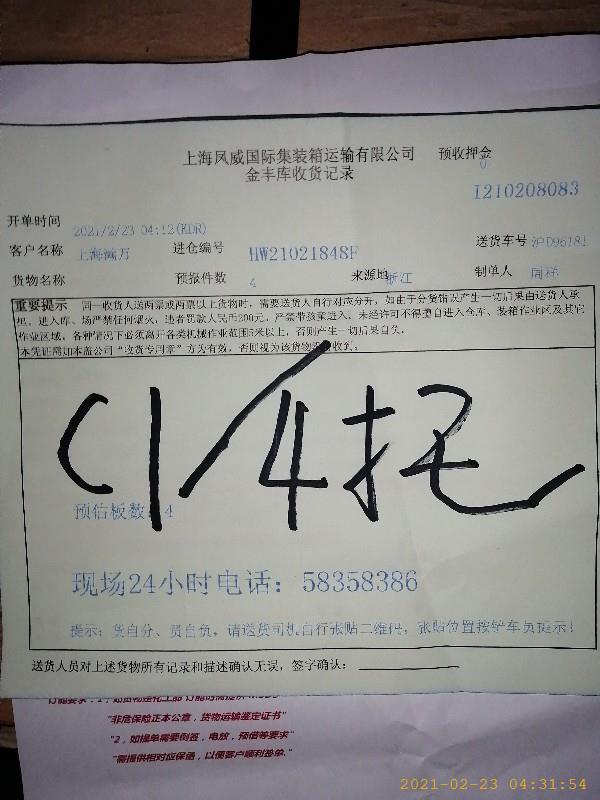 上海风威国际集装箱运输有限公司 预收押金
0
金丰库收货记录
I210208083
开单时间 2021/2/23 04:12(KDR)
客户名称 上海瀛万 进仓编号 HW21021848F 送货车号 沪D96181
货物名称 预报件数 4 来源地 浙江 制单人 周祥
重要提示 同一收货人送两票或两票以上货物时，需要送货人自行对应分开，如由于分货错误产生一切后果由送货人承
担，进入库、场严禁任何烟火，违者罚款人民币200元，严禁带孩童进入，未经许可不得擅自进入仓库、装箱作业区及其它
作业区域，各种情况下必须离开各类机械作业范围5米以上，否则产生一切后果自负。
本凭证需加本監公司“收货专用章”方为有效，否则视为该货物没有收到。
C1/4托
预估板数：4
现场24小时电话：58358386
提示：货自分、责自负，请送货司机自行张贴二维码，张贴位置按铲车员提示！
送货人员对上述货物所有记录和描述确认无误，签字确认：
"非危保险正本公章，货物运输鉴定证书"
"2，如提单需要倒签，电放，预借等要求"
"需提供相对应保函，以便客户顺利签单."
2021-02-23 04:31:54